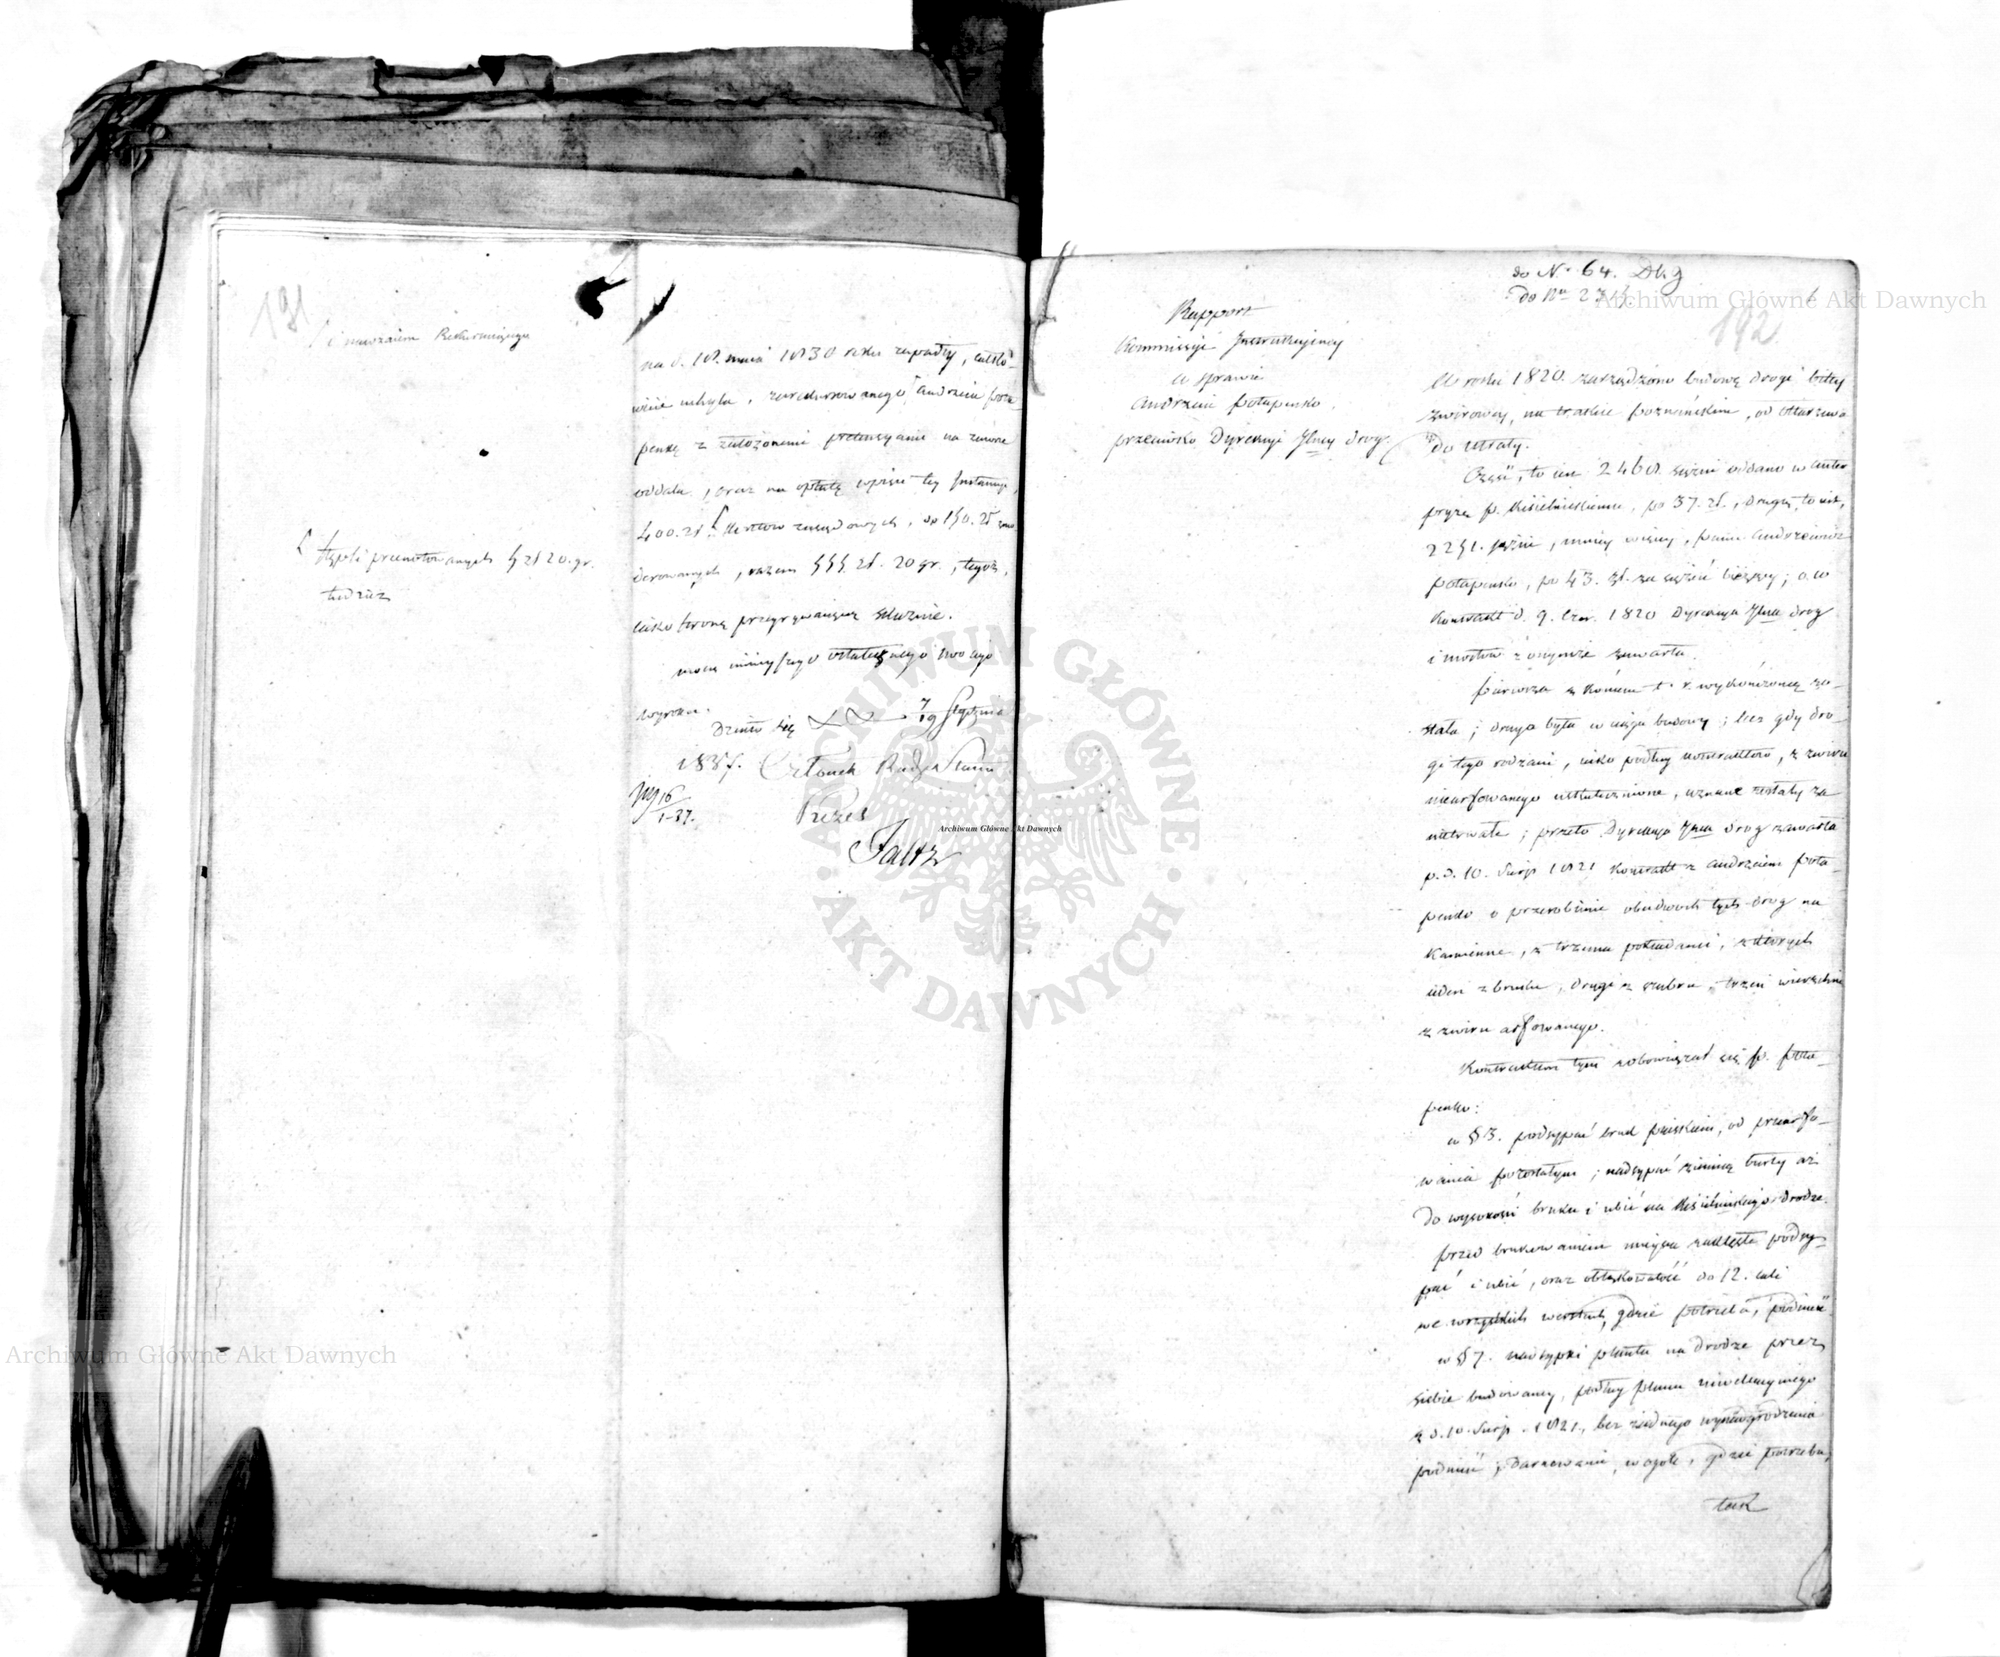 191
i nawzaiem Rekurruiącego
na d. 18. maia 1830 roku zapadły, całko-
wicie uchyla, zarekurrowanego Andrzeia Pota
penkę z założonemi pretensyami na zawsze
oddala, oraz na opłatę wpisu tey Instancyi,
400. zł. kosztów zasądzonych, do 150. zł
stępli przenotowanych 5 zł 20. gr.
tudzież
derowanych, razem 555 zł. 20 gr., tegoż,
iako stronę przegrywaiącą skazuie.
mocą ninieyszego ostatecznego swoiego
wyroku.
Działo się 7/19 Stycznia
1837. Członek Rady Stanu
Prezes
16/1-37.
do N. 64.
do Nu
192
Rapport
Kommissyi Instrukcyiney
w sprawie
Andrzeia Potapenko,
przeciwko Dyrekcyi Jlney drog.
W roku 1820. zarządzono budowę drogi bitey
żwirowey, na trakcie poznańskim, od Ołtarzewa
do Utraty.
Część, to iest 2468. sążni oddano w anter
pryzę P. Kisielnickiemu, po 37. zł., drugą, to iest,
2251. sążni, mniey więcey, Panu Andrzeiowi
Potapenko, po 43. zł. za sążeń bieżący; o co
Kontrakt d. 9. Czer. 1820 Dyrekcya Jlna drog
i mostów z onymże zawarła.
Pierwsza z końcem t. r. wykończoną zo-
stała; druga była w ciągu budowy; lecz gdy dro-
gi tego rodzaiu, iako podług kontraktów, z żwiru
niearfowanego uskutecznione, uznane zostały za
nietrwałe; przeto Dyrekcya Jlna drog zawarła
p. d. 10. Sierp 1821 Kontrakt z Andrzeiem Pota-
penko o przerobienie obudwoch tych drog na
kamienne, z trzema pokładami, z których
ieden z bruku, drugi z szabru, trzeci wierzchni
z żwiru arfowanego.
Kontraktem tym zobowiązał się P. Pota
penko:
w § 3. podsypać bruk piaskiem, od przearfo-
wania pozostałym; nadsypać ziemią burty aż
do wysokości bruku i ubić na Kisielnickiego drodze.
przed brukowaniem mieysca zaklęsłe podsy-
pać i ubić, oraz obłąkowatość do 12. cali
we wszystkich warstwach, gdzie potrzeba, podnieść
w § 7. nasypki plantu na drodze przez
siebie budowaney, podług planu niwellacyinego
z d. 10. Sierp. 1821., bez żadnego wynagrodzenia
podnieść; w ogóle, gdzie potrzeba,
tak
Archiwum Główne Akt Dawnych
Archiwum Główne Akt Dawnych
Archiwum Główne Akt Dawnych
ARCHIWUM GŁÓWNE
AKT DAWNYCH